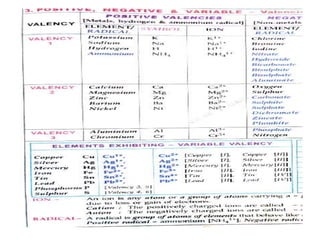 3. POSITIVE, NEGATIVE & VARIABLE - Valenc
POSITIVE VALENCIES NEGAT
VALENCY [Metals, hydrogen & ammonium radical] [Non-metals
ELEMENT/ SYMBOL ION ELEMENT/
RADICAL RADICAL
VALENCY 1
Potassium K K¹⁺ Chlorine
Sodium Na Na¹⁺ Bromine
Hydrogen H H¹⁺ Iodine
Ammonium NH₄ NH₄¹⁺ Nitrate
Hydroxide
Bicarbonate
Bisulphite
Bisulphate
Aluminate
VALENCY 2
Calcium Ca Ca²⁺ Oxygen
Magnesium Mg Mg²⁺ Sulphur
Zinc Zn Zn²⁺ Carbonate
Barium Ba Ba²⁺ Sulphite
Nickel Ni Ni²⁺ Sulphate
Dichromate
Zincate
Plumbite
VALENCY 3
Aluminium Al Al³⁺ Phosphate
Chromium Cr Cr³⁺ Nitrogen
ELEMENTS EXHIBITING - VARIABLE VALENCY
Copper Cu Cu¹⁺ Cu²⁺ [Copper [I], Copper [II]]
Silver Ag Ag¹⁺ Ag²⁺ [Silver [I], Silver [II]]
Mercury Hg Hg¹⁺ Hg²⁺ [Mercury [I], Mercury [II]]
Iron Fe Fe²⁺ Fe³⁺ [Iron [II], Iron [III]]
Tin Sn Sn²⁺ Sn⁴⁺ [Tin [II], Tin [IV]]
Lead Pb Pb²⁺ Pb⁴⁺ [Lead [II], Lead [IV]]
Phosphorus P [Valency 3, 5]
Sulphur S
ION - An ion is any atom or a group of atoms carrying a
due to loss or gain of electrons.
Cation : The positively charged ions are called
Anion : The negatively charged ions are called
RADICAL - A radical is group of atoms of elements that behave like
Positive radical - ammonium [NH₄¹⁺], Negative